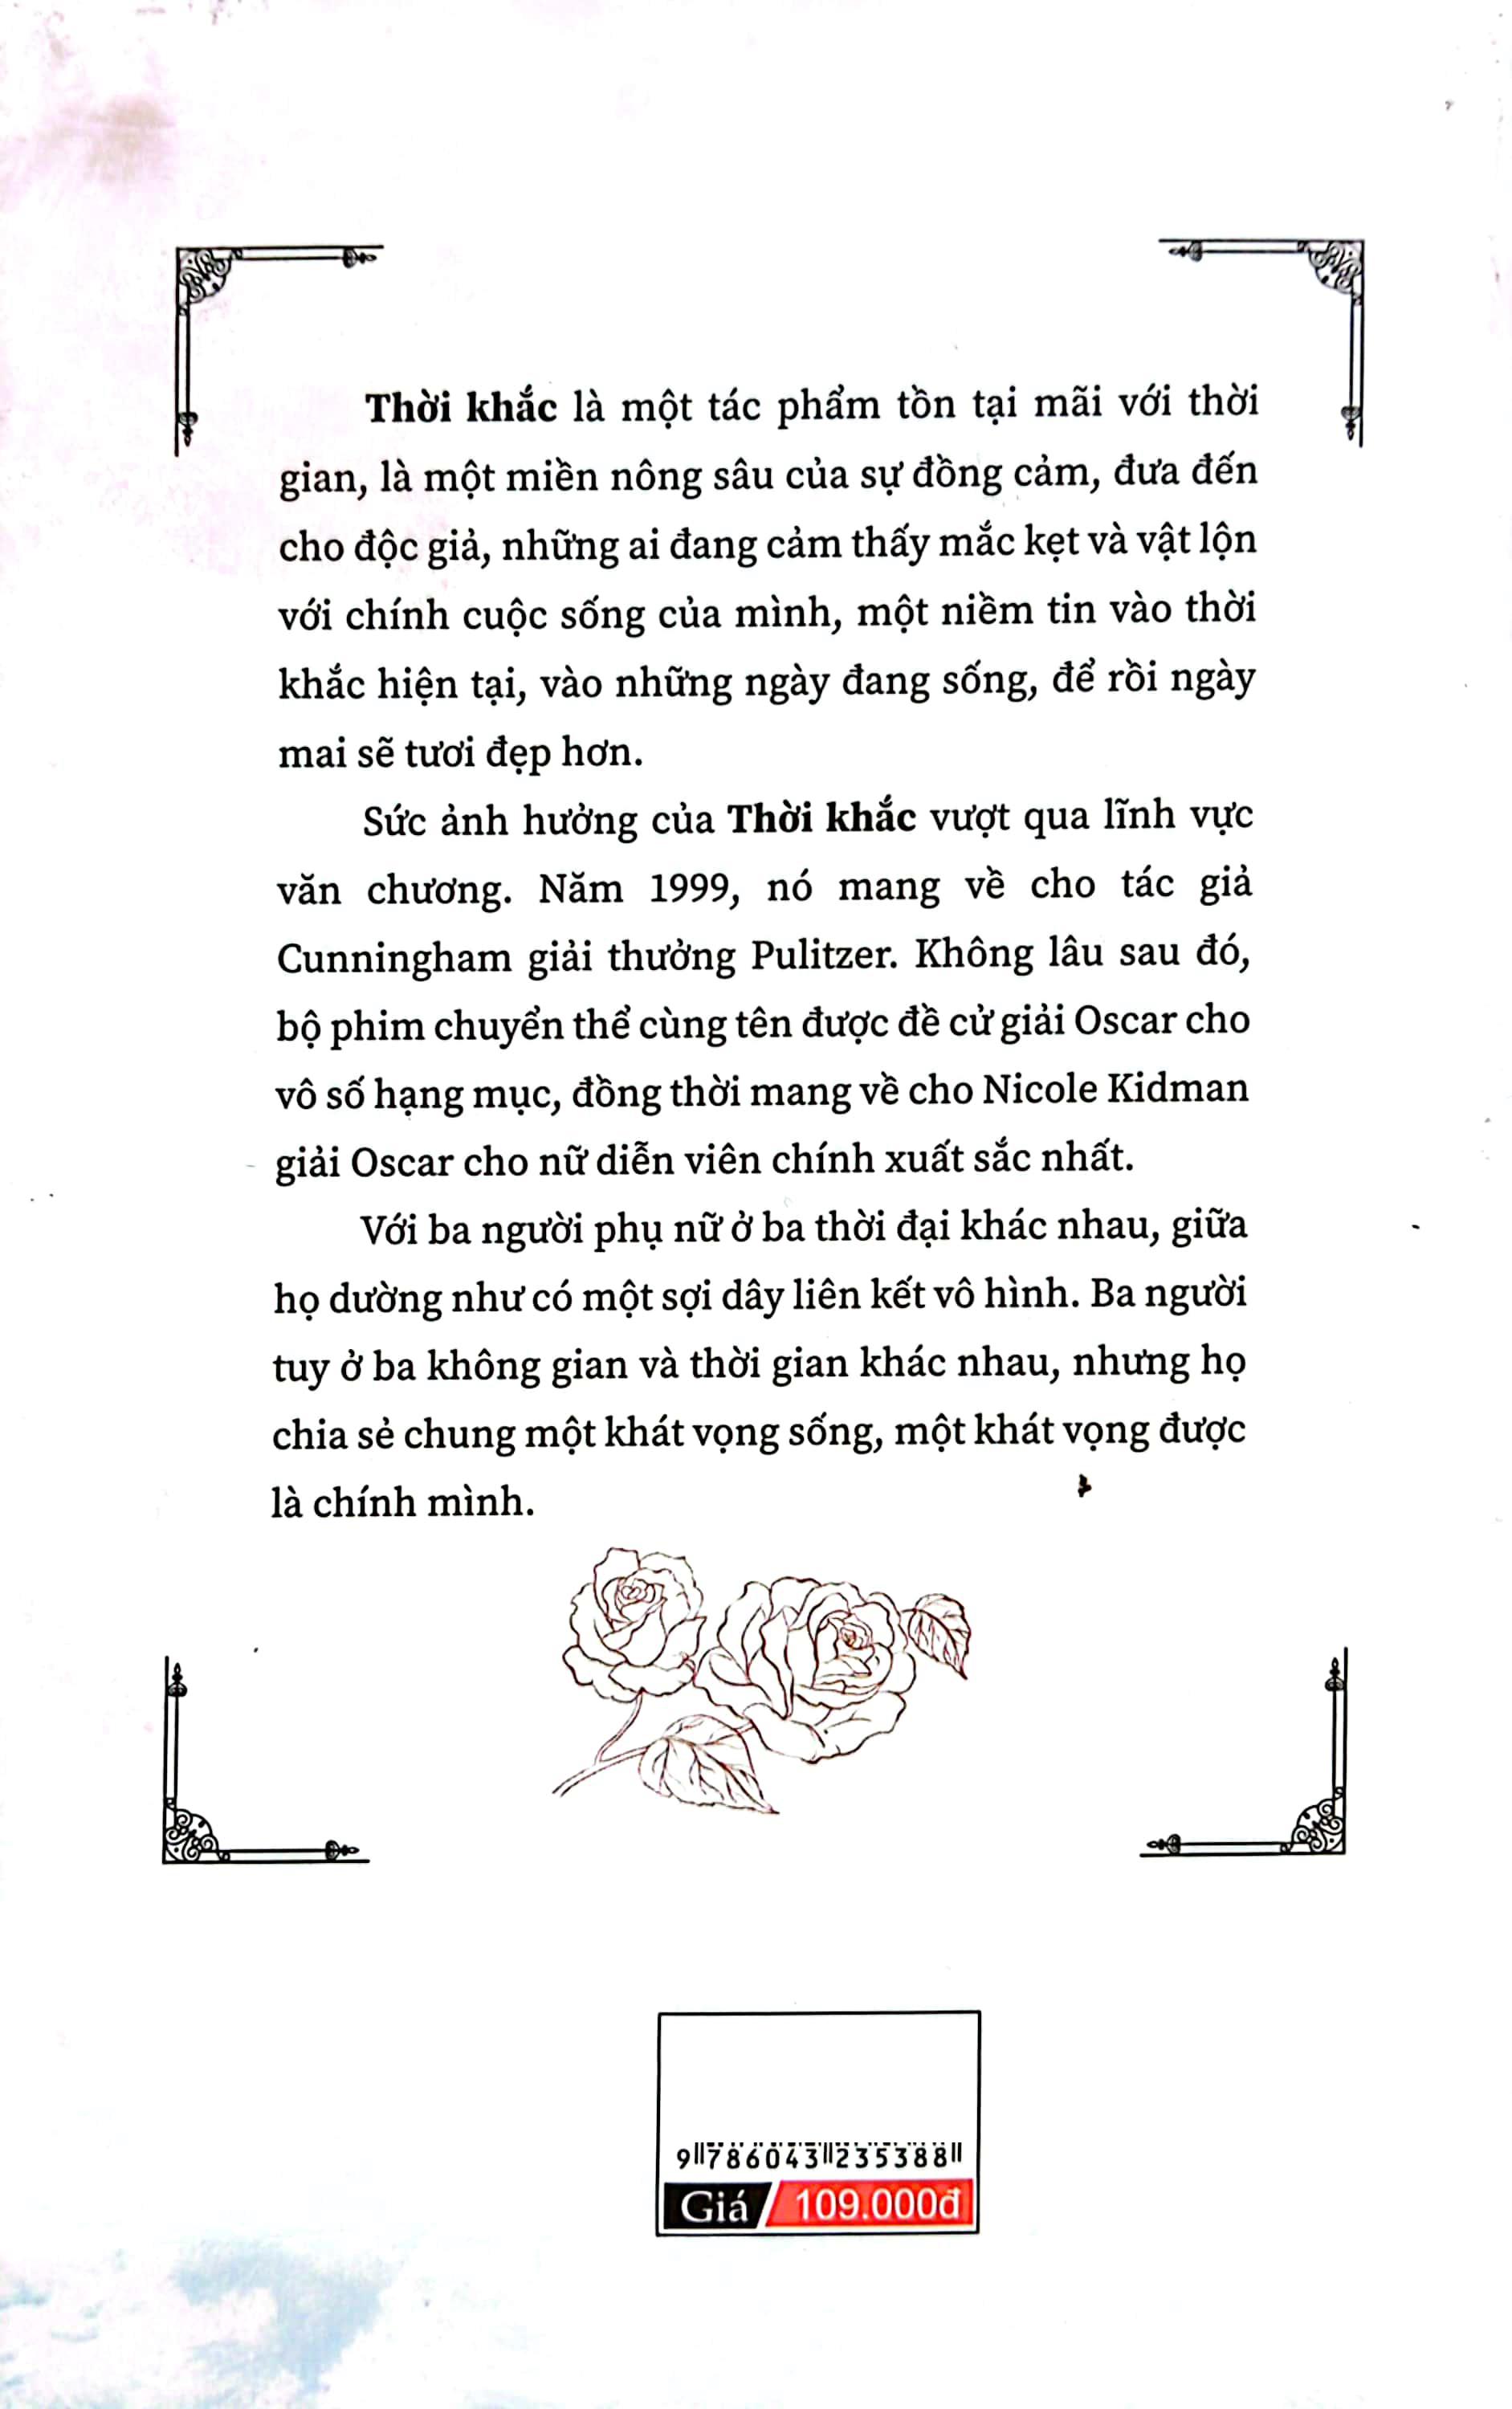 Thời khắc là một tác phẩm tồn tại mãi với thời
gian, là một miền nông sâu của sự đồng cảm, đưa đến
cho độc giả, những ai đang cảm thấy mắc kẹt và vật lộn
với chính cuộc sống của mình, một niềm tin vào thời
khắc hiện tại, vào những ngày đang sống, để rồi ngày
mai sẽ tươi đẹp hơn.
Sức ảnh hưởng của Thời khắc vượt qua lĩnh vực
văn chương. Năm 1999, nó mang về cho tác giả
Cunningham giải thưởng Pulitzer. Không lâu sau đó,
bộ phim chuyển thể cùng tên được đề cử giải Oscar cho
vô số hạng mục, đồng thời mang về cho Nicole Kidman
giải Oscar cho nữ diễn viên chính xuất sắc nhất.
Với ba người phụ nữ ở ba thời đại khác nhau, giữa
họ dường như có một sợi dây liên kết vô hình. Ba người
tuy ở ba không gian và thời gian khác nhau, nhưng họ
chia sẻ chung một khát vọng sống, một khát vọng được
là chính mình.
9 786043 235388
Giá 109.000đ